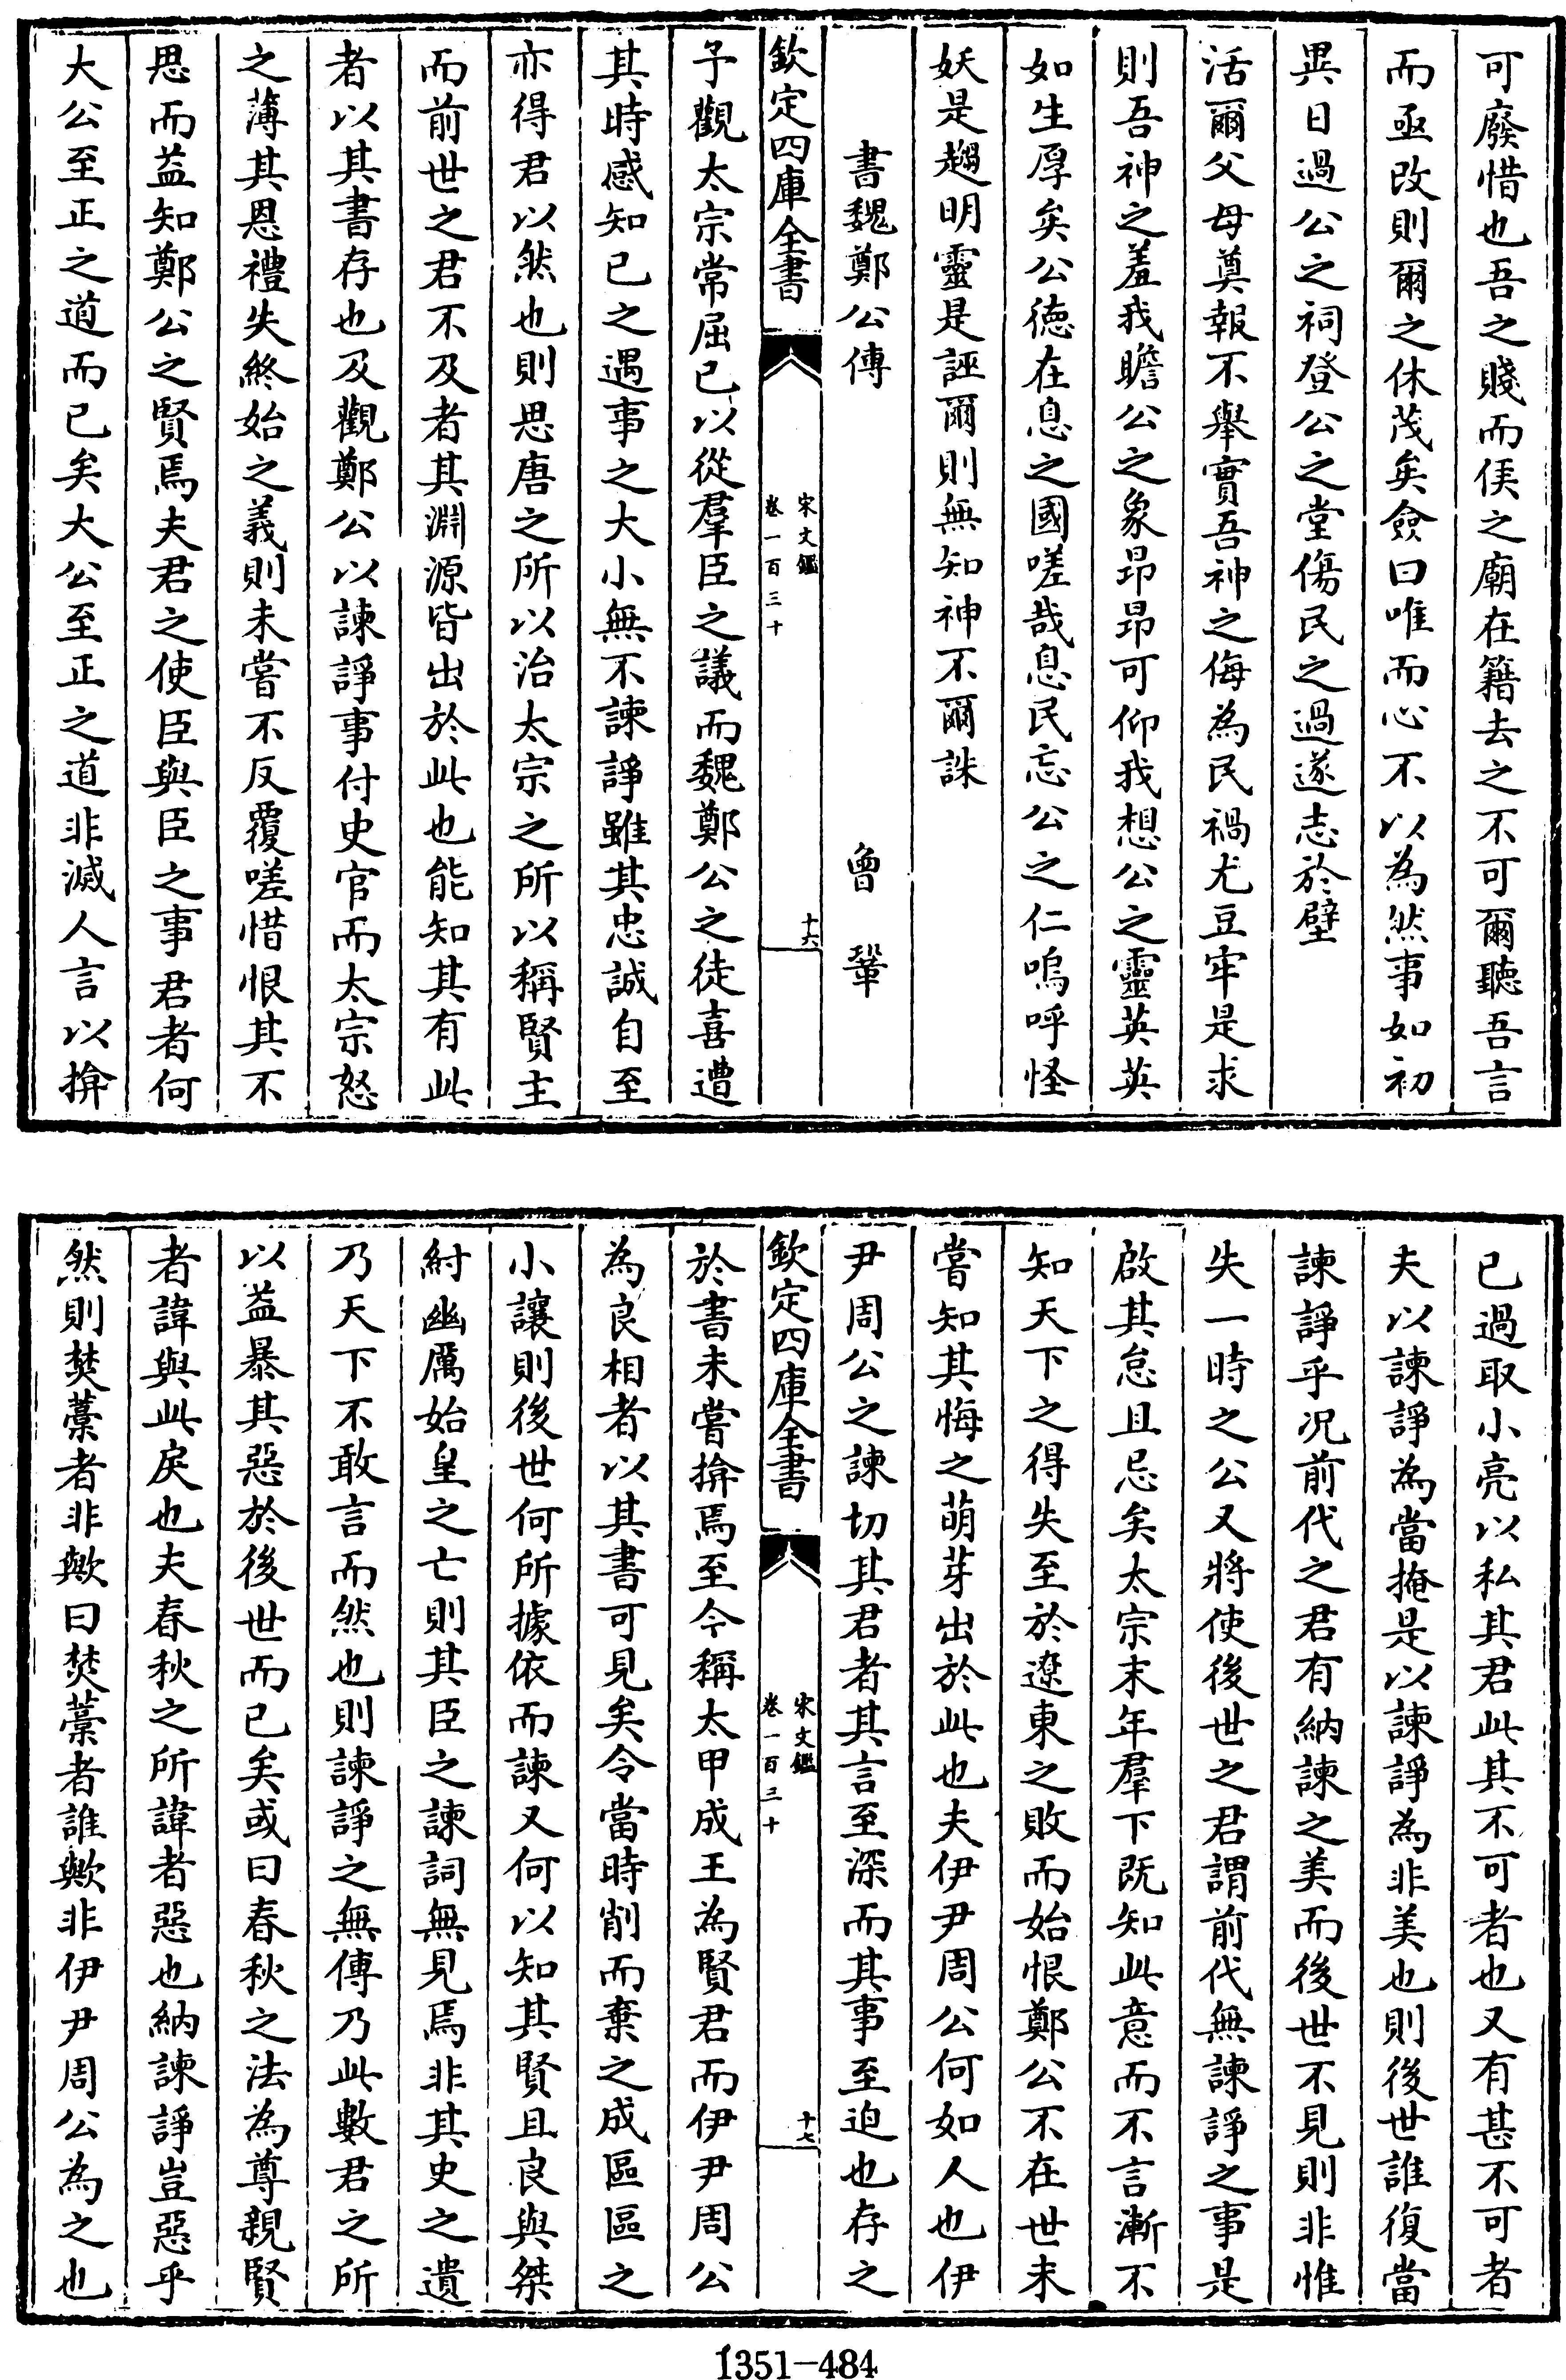 可廢惜也吾之賤而侯之廟在籍去之不可爾聽吾言
而亟改則爾之休茂矣僉曰唯而心不以為然事如初
異日過公之祠登公之堂傷民之過遂志於壁
活爾父母奠報不舉實吾神之侮為民禍尤豆牢是求
則吾神之羞我瞻公之象昂昂可仰我想公之靈英英
如生厚矣公德在息之國嗟哉息民忘公之仁嗚呼怪
妖是趨明靈是誣爾則無知神不爾誅
書魏鄭公傳 曾鞏
欽定四庫全書
宋文鑑
卷一百三十
十六
予觀太宗常屈已以從羣臣之議而魏鄭公之徒喜遭
其時感知已之遇事之大小無不諫諍雖其忠誠自至
亦得君以然也則思唐之所以治太宗之所以稱賢主
而前世之君不及者其淵源皆出於此也能知其有此
者以其書存也及觀鄭公以諫諍事付史官而太宗怒
之薄其恩禮失終始之義則未嘗不反覆嗟惜恨其不
思而益知鄭公之賢焉夫君之使臣與臣之事君者何
大公至正之道而已矣大公至正之道非滅人言以揜
已過取小亮以私其君此其不可者也又有甚不可者
夫以諫諍為當掩是以諫諍為非美也則後世誰復當
諫諍乎况前代之君有納諫之美而後世不見則非惟
失一時之公又將使後世之君謂前代無諫諍之事是
啟其怠且忌矣太宗末年羣下既知此意而不言漸不
知天下之得失至於遼東之敗而始恨鄭公不在世未
嘗知其悔之萌芽出於此也夫伊尹周公何如人也伊
尹周公之諫切其君者其言至深而其事至迫也存之
欽定四庫全書
宋文鑑
卷一百三十
十七
於書未嘗揜焉至今稱太甲成王為賢君而伊尹周公
為良相者以其書可見矣令當時削而棄之成區區之
小讓則後世何所據依而諫又何以知其賢且良與桀
紂幽厲始皇之亡則其臣之諫詞無見焉非其史之遺
乃天下不敢言而然也則諫諍之無傳乃此數君之所
以益暴其惡於後世而已矣或曰春秋之法為尊親賢
者諱與此戾也夫春秋之所諱者惡也納諫諍豈惡乎
然則焚藁者非歟曰焚藁者誰歟非伊尹周公為之也
1351-484